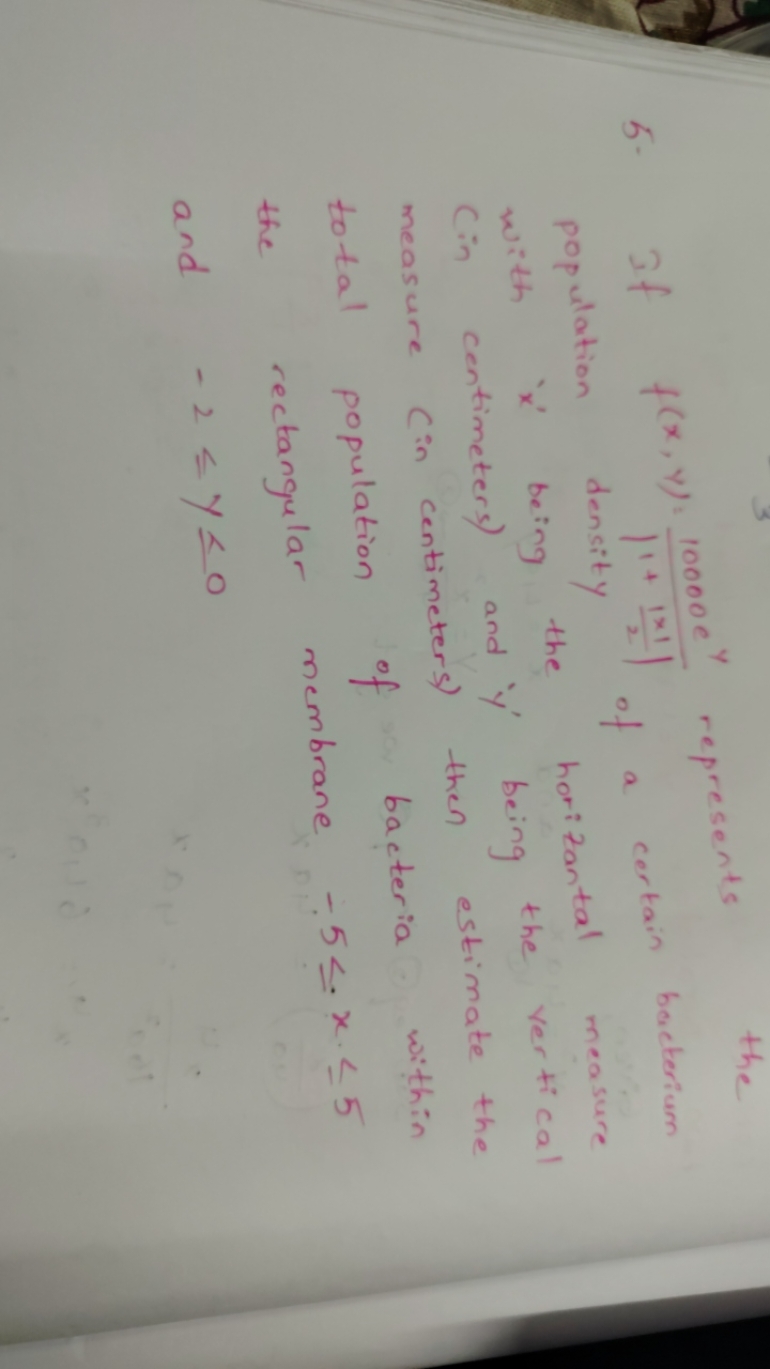 3
the
5. If f(x, y) = 10000e^y / |1 + |x|/2| represents
population density of a certain bacterium
with 'x' being the horizontal measure
(in centimeters) and 'y' being the vertical
measure (in centimeters) then estimate the
total population of bacteria within
the rectangular membrane -5 ≤ x ≤ 5
and -2 ≤ y ≤ 0